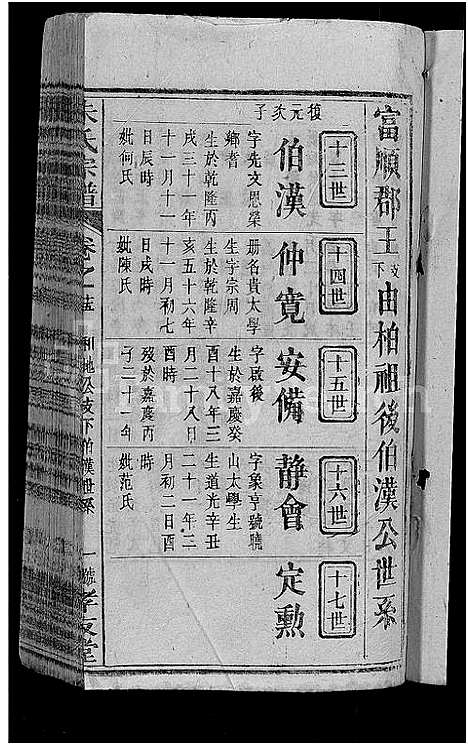 富順郡王支下由柏祖後伯漢公世系
十三世
十四世
十五世
十六世
十七世
復元次子
伯漢
字先文恩榮
鄉耆
生於乾隆丙
戌三十一年
十一月十一
日辰時
妣何氏
仲寬
册名貴太學
生字宗周
生於乾隆辛
亥五十六年
十一月初七
日戌時
妣陳氏
安備
字啟後
生於嘉慶癸
酉十八年三
月二十八日
酉時
歿於嘉慶丙
子二十一年
靜會
字象亨號曉
山太學生
生道光辛丑
二十一年三
月初二日酉
時
妣范氏
定勳
朱氏宗譜
卷之
和地公支下伯漢世系
一號
孝友堂